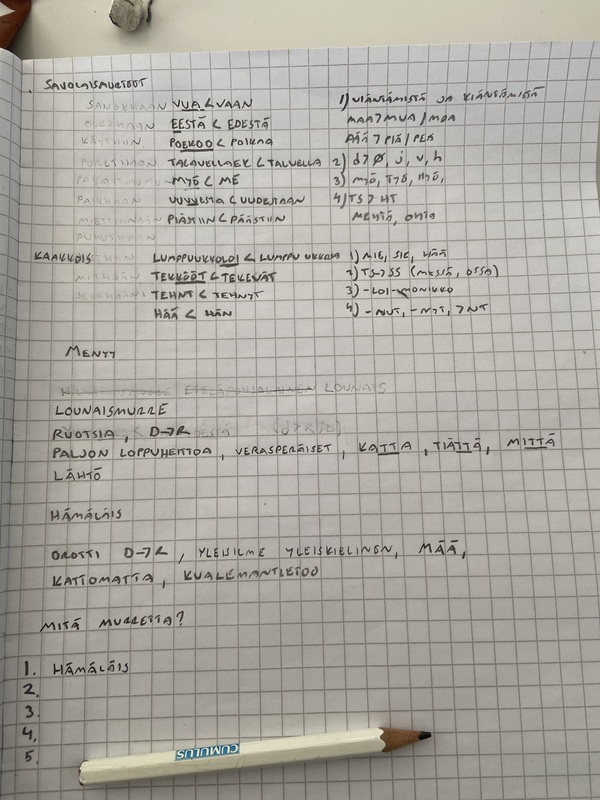 SAVOLAISMURTEET
VUA < VAAN 1) VIÄNTÄMISTÄ JA KIÄNTÄMISTÄ
EESTÄ < EDESTÄ MAA > MUA / MOA
POEKOO < POIKAA PÄÄ > PIÄ / PEÄ
TALAVELLAEK < TALVELLA 2) d > Ø, j, v, h
MYÖ < ME 3) MYÖ, TYÖ, HYÖ,
UUVVESTA < UUDESTAAN 4) TS > HT
PIÄSTIIN < PÄÄSTIIN MEHTÄ, OHTO
KAAKKOIS LUMPPUUKKOLOI < LUMPPU UKKOJA 1) MIE, SIE, HÄÄ
TEKKÖÖT < TEKEVÄT 2) TS > SS (MESSÄ, OSSA)
TEHNT < TEHNYT 3) -LOI- MONIKKO
HÄÄ < HÄN 4) -NUT, -NYT, > NT
MENYY
ETELÄPOHJALAINEN LOUNAIS
LOUNAISMURRE
RUOTSIA, D→R
PALJON LOPPUHEITTOA, VERASPERÄISET, KATTA, TIÄTTÄ, MITTÄ
LÄHTÖ
HÄMÄLÄIS
OROTTI D→R, YLEISILME YLEISKIELINEN, MÄÄ,
KATTOMATTA, KUALEMANTLETOO
MITÄ MURRETTA?
1. HÄMÄLÄIS
2.
3.
4.
5.
CUMULUS